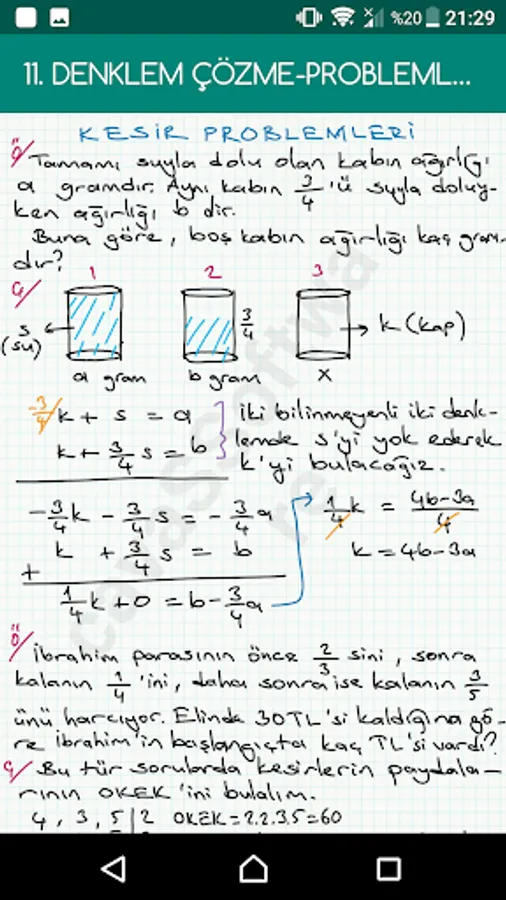 %20 21:29
11. DENKLEM ÇÖZME-PROBLEML...
KESİR PROBLEMLERİ
Ö/ Tamamı suyla dolu olan kabın ağırlığı
a gramdır. Aynı kabın 3/4 'ü suyla doluy-
ken ağırlığı b dir.
Buna göre, boş kabın ağırlığı kaç gram-
dır?
Ç/ 1 2 3
s (su) 3/4 k (kap)
a gram b gram x
-3/4 / k + s = a
k + 3/4 s = b
iki bilinmeyenli iki denk-
lemde s'yi yok ederek
k'yi bulacağız.
-3/4 k - 3/4 s = -3/4 a
k + 3/4 s = b
+
1/4 k + 0 = b - 3/4 a
1/4 k = 4b-3a/4
k = 4b-3a
Ö/ İbrahim parasının önce 2/3 sini, sonra
kalanın 1/4 'ini, daha sonra ise kalanın 3/5
ünü harcıyor. Elinde 30TL'si kaldığına gö-
re İbrahim'in başlangıçta kaç TL'si vardı?
Ç/ Bu tür sorularda kesirlerin paydala-
rının OKEK'ini bulalım.
4, 3, 5 | 2 OKEK=2.2.3.5=60